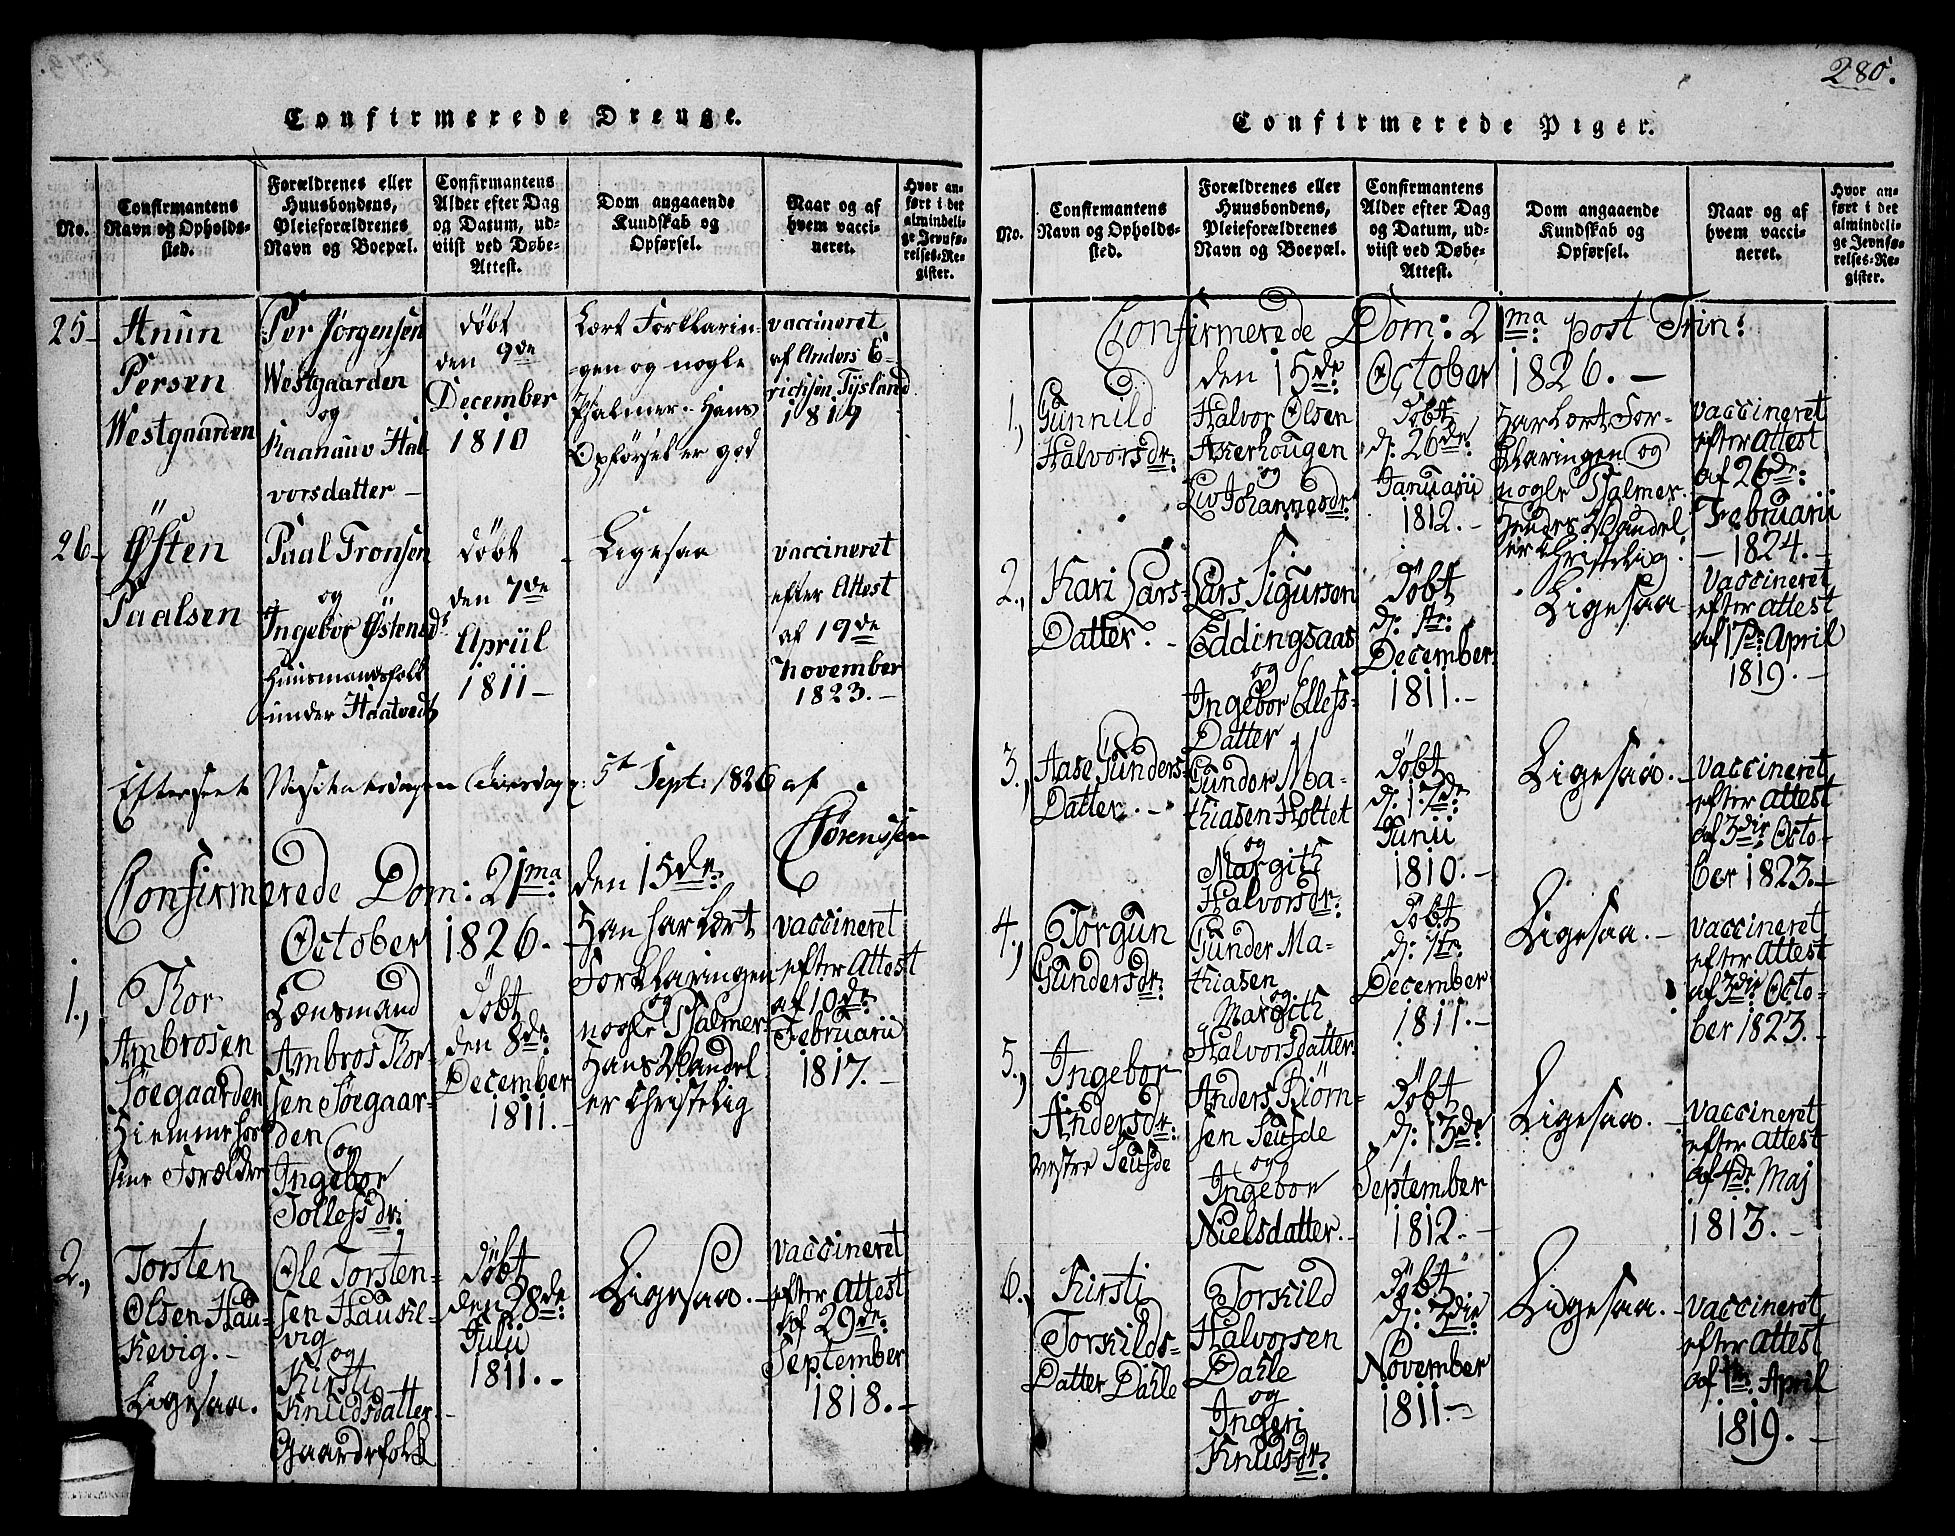 280.
Confirmerede Drenge.
No.
Confirmantens
Navn og Opholds-
sted.
Forældrenes eller
Huusbondens,
Pleieforældrenes
Navn og Boepæl.
Confirmantens
Alder efter Dag
og Datum, ud-
viist ved Døbe-
Attest.
Dom angaaende
Kundskab og
Opførsel.
Naar og af
hvem vacci-
neret.
Hvor an-
ført i det
almindeli-
ge Jevnfø-
relses-Re-
gister.
25
Anun
Persen
Westgaarden
Per Jørgensen
Westgaarden
og
Raanauv Hal-
vorsdatter
døbt
den 9de
December
1810
Lært Forklarin-
gen og nogle
Psalmer. Hans
Opførsel er god
vaccineret
af Anders E-
richsen Tysland
1819
26
Østen
Paalsen
Paal Tronsen
og
Ingebor Østensd.
Huusmandsfolk
under Haatvedt
døbt
den 7de
Apriil
1811
Ligesaa
vaccineret
efter Attest
af 19de
november
1823.
Efterseet Visitatsdagen Tiirsdag 5t Sept: 1826 af
Sørenssen
Confirmerede Dom: 21ma den 15de
October 1826.
1.,
Thor
Ambrosen
Søegaarden
Hiemme hos
sine Forældre
Lænsmand
Ambros Thor-
sen Søegaar-
den
og
Ingebor
Tollefsdr:
Døbt
den 8de:
December
1811.
Han har Lært
Forklaringen
og
nogle Psalmer
Hans Wandel
er Christelig
vaccineret
efter Attest
af 10de
Februarii
1817.
2.,
Torsten
Olsen Hau-
kevig.
Ligesaa.
Ole Torsten-
sen Haukel-
vig
og
Kirsti
Knudsdatter
Gaardefolk
Døbt
den 28de:
Julii
1811.
Ligesaa.
vaccineret
efter Attest
af 29de:
September
1818.
Confirmerede Piger.
No.
Confirmantens
Navn og Opholds-
sted.
Forældrenes eller
Huusbondens,
Pleieforældrenes
Navn og Boepæl.
Confirmantens
Alder efter Dag
og Datum, ud-
viist ved Døbe-
Attest.
Dom angaaende
Kundskab og
Opførsel.
Naar og af
hvem vacci-
neret.
Hvor an-
ført i det
almindeli-
ge Jevnfø-
relses-Re-
gister.
Confirmerede Dom: 21ma post Trin:
den 15de: October 1826.
1.,
Gunnild
Halvorsdr:
Halvor Olsen
Akerhougen
og
Liv Johannesdr:
Døbt
d: 26de
Januarii
1812.
Har Lært For-
klaringen og
nogle Psalmer.
Hendes Wandel
er Christelig
vaccineret
efter Attest
af 26de:
Februarii
1824.
2.,
Kari Lars-
Datter.
Lars Sigursen
Eddingsaas
og
Ingebor Ellefs-
Datter
Døbt
d: 1ste:
December
1811.
Ligesaa
Vaccineret
efter attest
af 17de: April
1819.
3.,
Aase Gunders-
Datter.
Gunder Ma-
thiasen Holtet
og
Margith
Halvorsdr:
Døbt
d: 17de:
Junii
1810.
Ligesaa.
vaccineret
efter attest
af 3die Octo-
ber 1823.
4.,
Torgun
Gundersdr:
Gunder Ma-
thiasen
og
Margith
Halvorsdatter
Døbt
d: 1ste
December
1811.
Ligesaa.
vaccineret
efter Attest
af 3die Octo-
ber 1823.
5.,
Ingebor
Andersdr:
vestre Seusde
Anders Biørn-
sen Seusde
og
Ingebor
Nielsdatter.
Døbt
d: 13de:
September
1812.
Ligesaa.
vaccineret
efter attest
af 4de Maj
1813.
6.,
Kirsti
Torkilds-
Datter Dahle
Torkild
Halvorsen
Dahle
og
Ingeri
Knudsdr:
Døbt
d: 3die
November
1811.
Ligesaa.
vaccineret
efter attest
af 1ste April
1819.